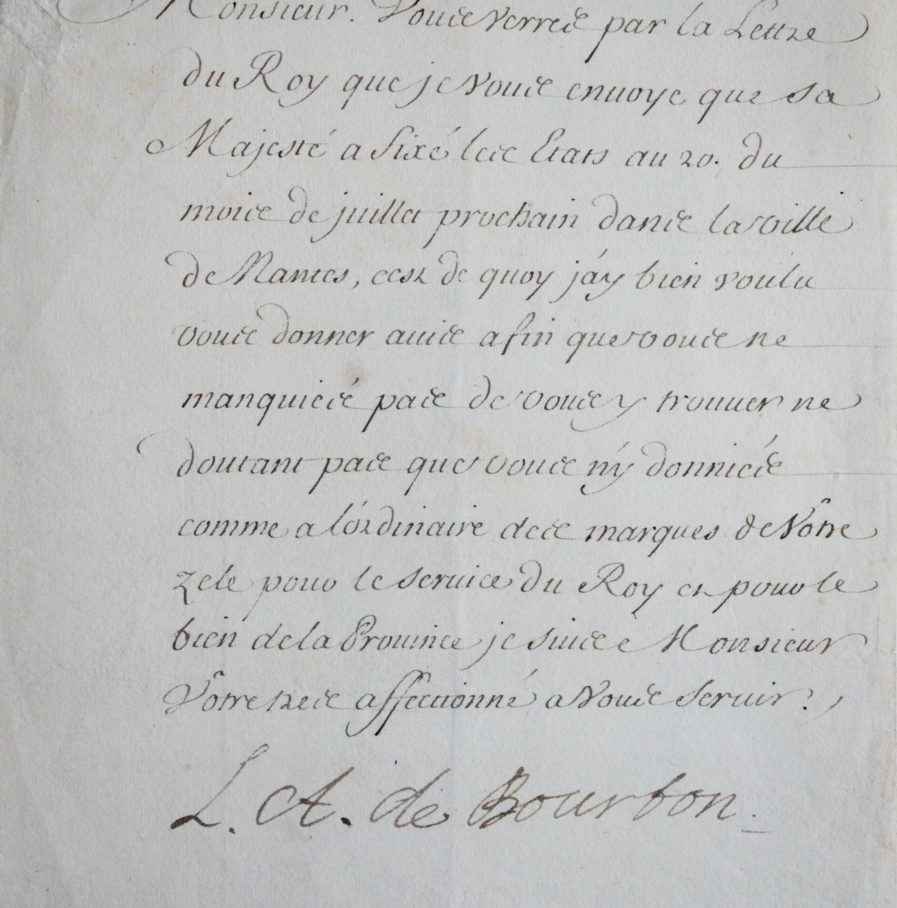 Monsieur. Vous verres par la Lettre
du Roy que je Vous envoye que Sa
Majesté a fixé les Etats au 20. du
mois de juillet prochain dans la ville
de Nantes, cest de quoy j'ay bien voulu
vous donner auis afin que vous ne
manquiés pas de vous y trouuer ne
doutant pas que vous n'y donniés
comme a l'ordinaire des marques de Votre
zele pour le seruice du Roy et pour le
bien de la Prouince je suis Monsieur
Votre tres affectionné a Vous seruir.
L. A. de Bourbon